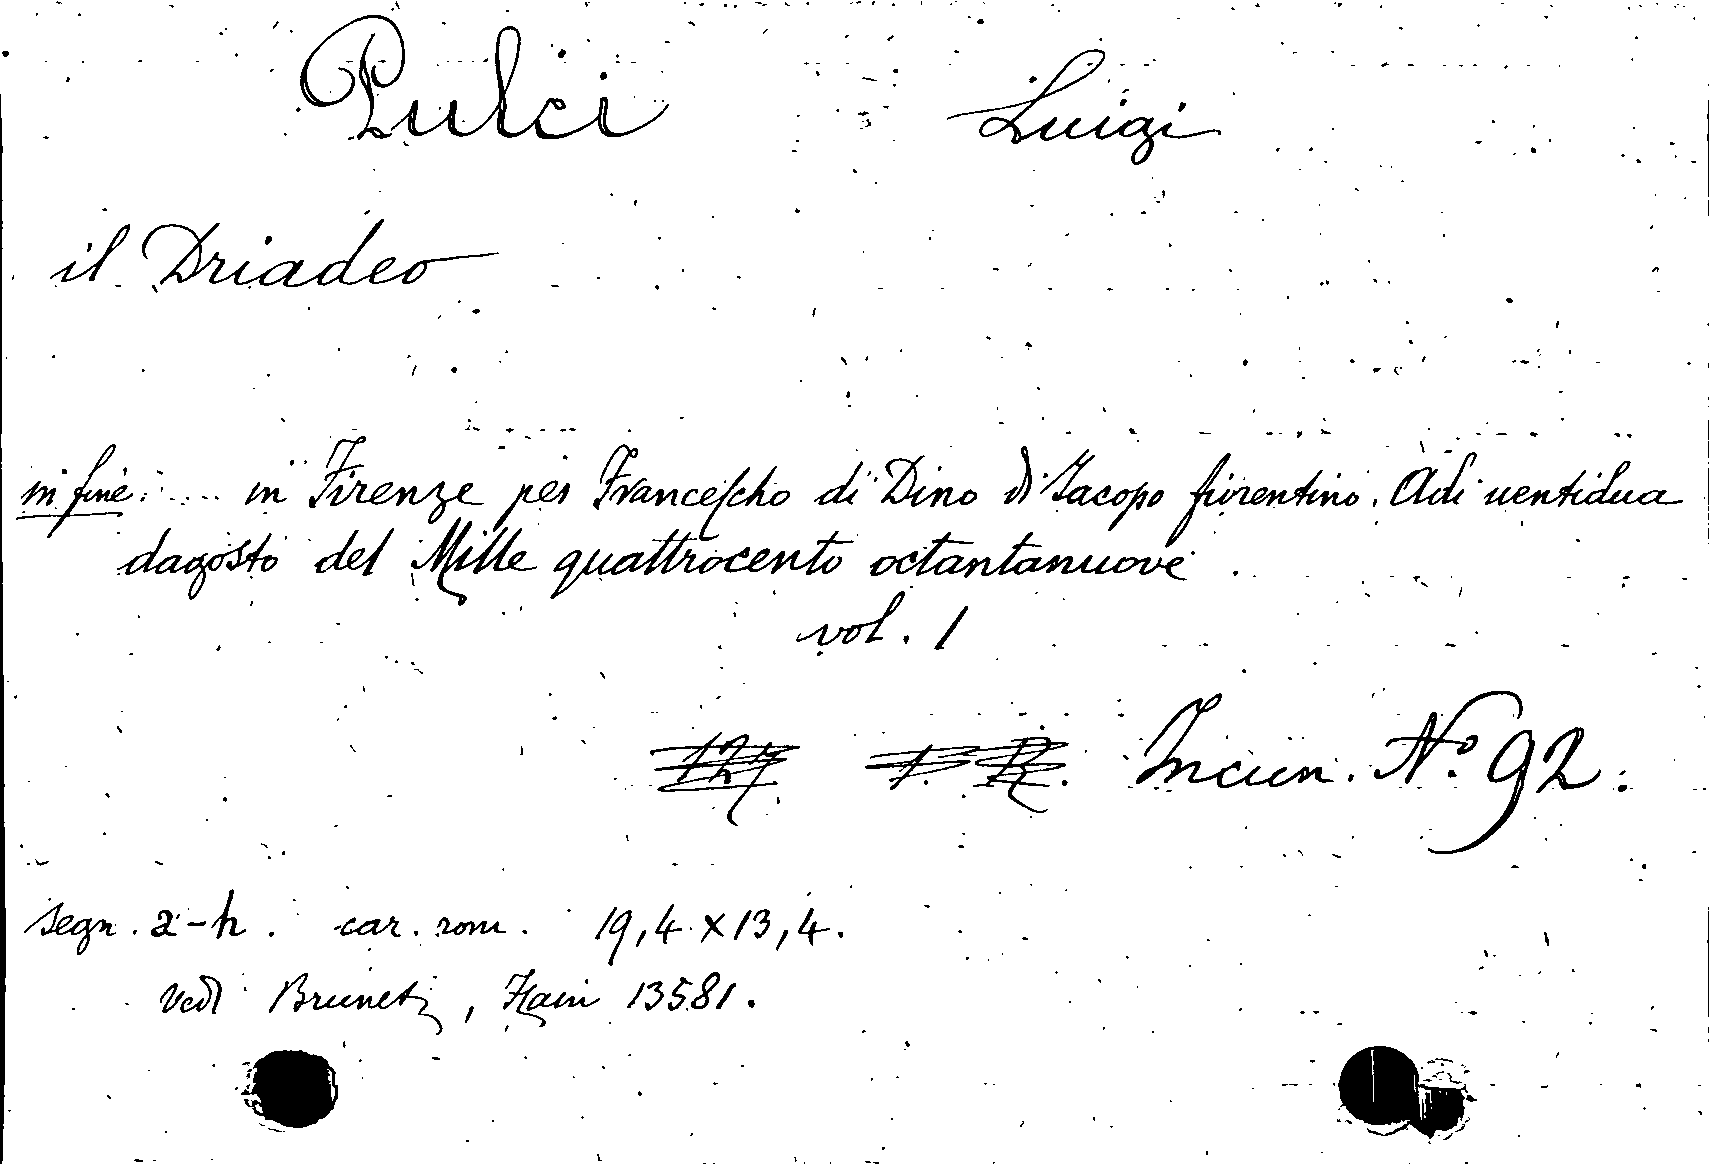 Pulci Luigi
il Driadeo
in fine: .... in Firenze per Franceſcho di Dino di Iacopo fiorentino. Adi uentidua
dagosto del Mille quattrocento octantanuove
vol. 1
Incun. Nº 92.
segn. a-h. car. rom. 19,4 x 13,4.
vedi Brunet, Hain 13581.